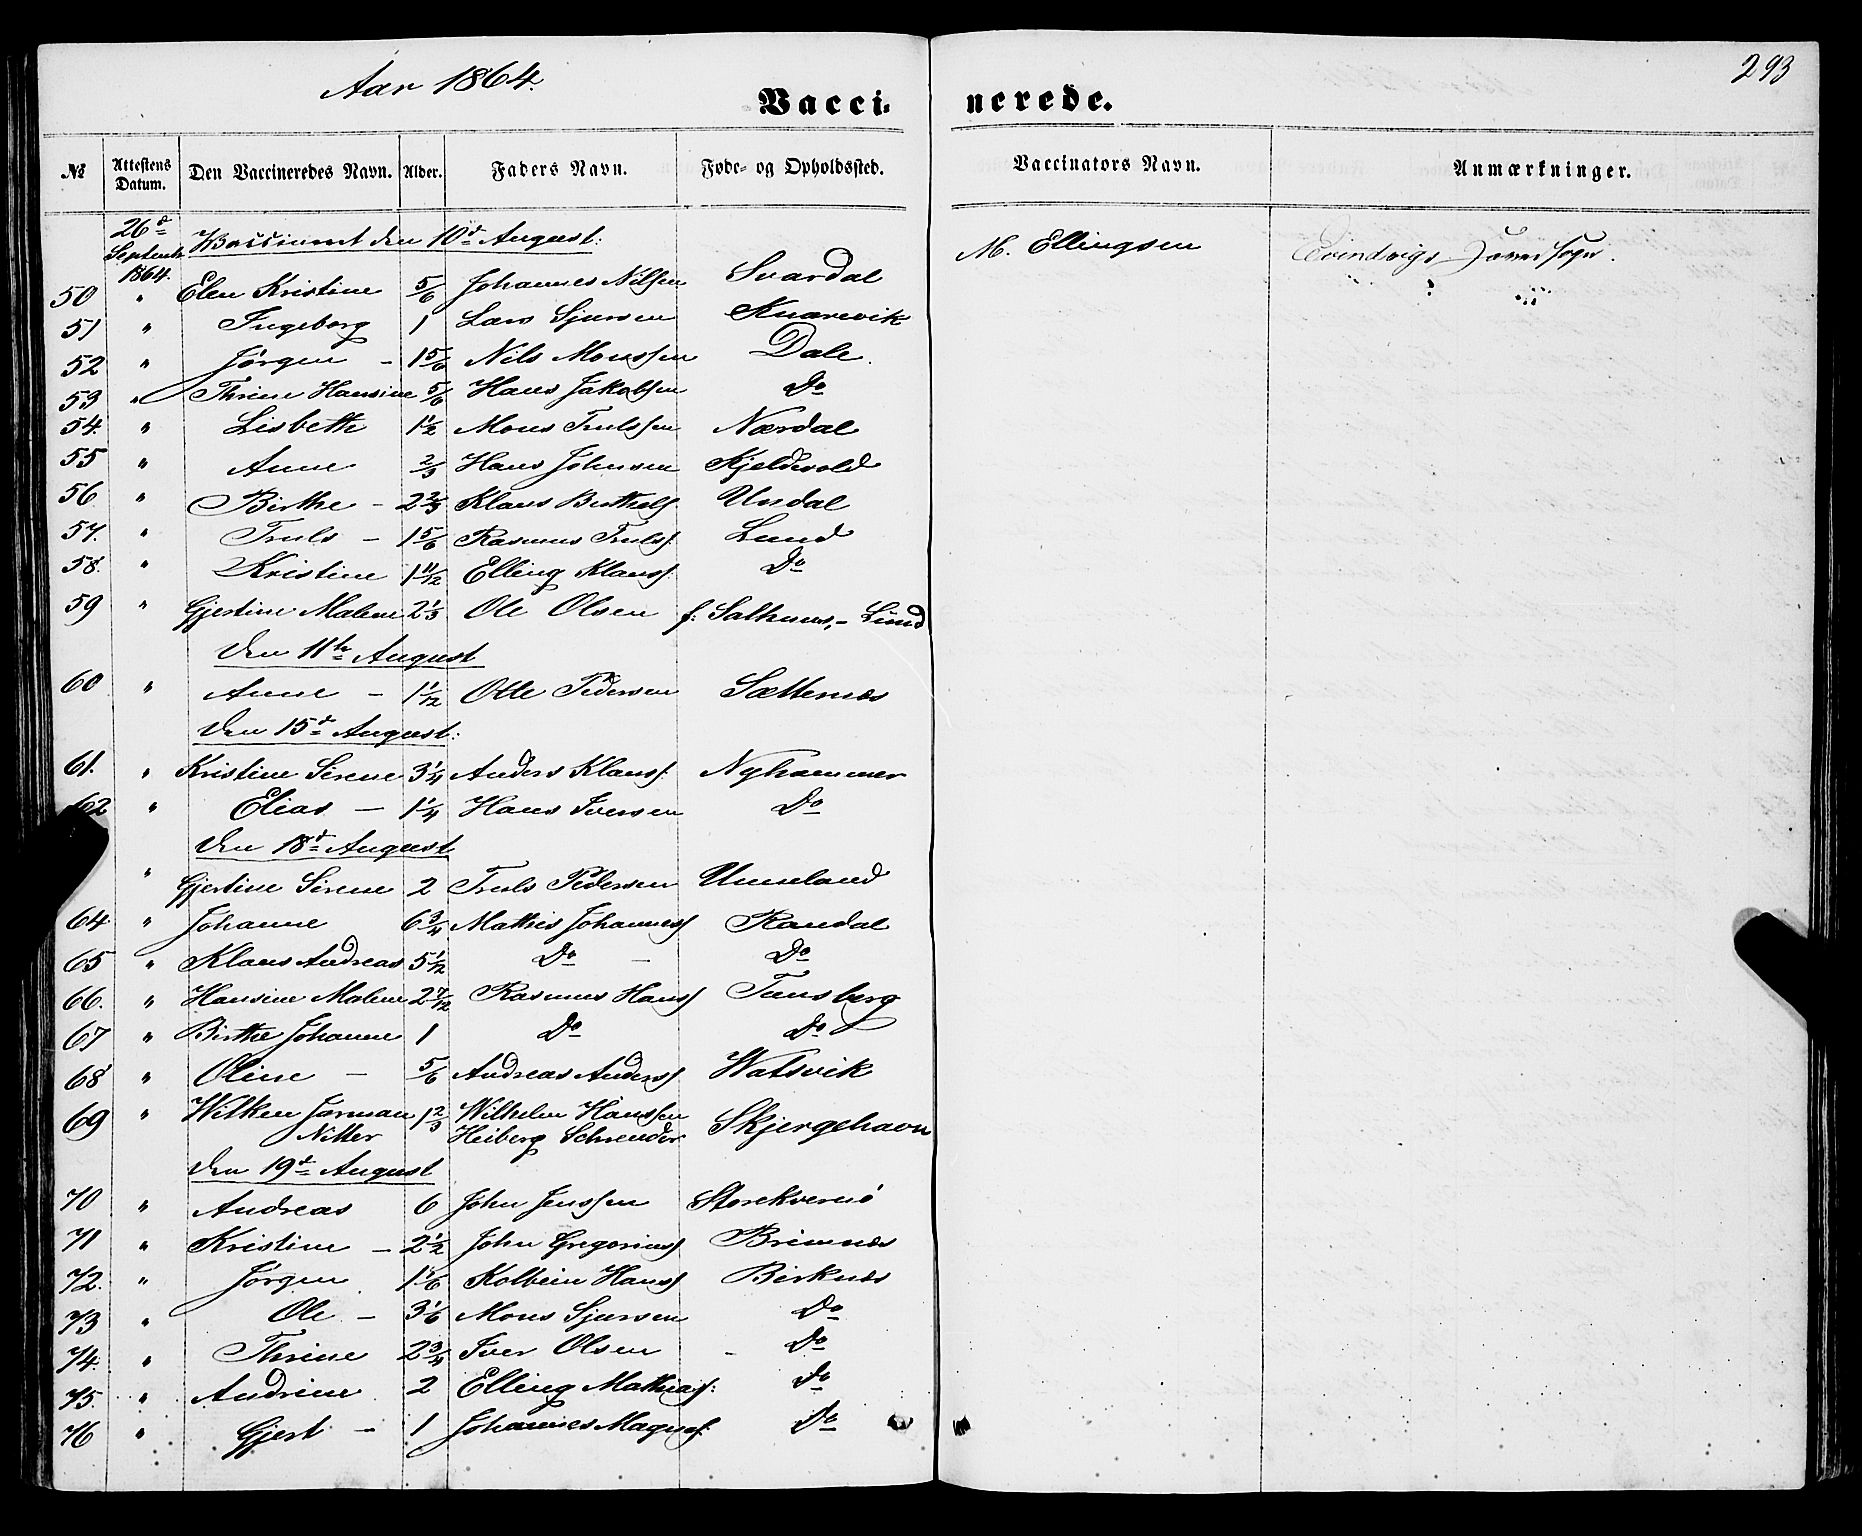 Aar 1864.
293
Vacci- nerede.
No Attestens Datum. Den Vaccineredes Navn. Alder. Faders Navn. Føde- og Opholdssted. Vaccinators Navn. Anmærkninger.
26d Septemb 1864. Vaccineret den 10d August: M. Ellingsen Evindvigs Sogn.
50 " Elen Kristine 5/6 Johannes Nilsen Svardal
51 " Ingeborg 1 Lars Sjursen Knarevik
52 " Jörgen - 1 5/6 Nils Monssen Dale.
53 " Thrine Hansine 5/6 Hans Jakobsen Do
54. " Lisbeth 1 1/2 Mons Trulssen Nærdal
55 " Anne 2/3 Hans Johnsen Kjeldevold
56 " Birthe - 2 2/3 Klaus Berthels Undal
57. " Truls - 1 5/6 Rasmus Truls. Lund
58. " Kristine 1 11/12 Elling Klauss. Do
59 " Gjertine Malene 2 1/3 Ole Olsen f: Salhuus, - Lund
Den 11te August
60 " Anne - 1 1/12 Otte Pedersen Sættenæs
Den 15d August:
61. " Kristine Sirene 3 1/4 Anders Klauss. Nyhammer
62 " Elias - 1 1/4 Hans Iversen Do
Den 18d August
" Gjertine Sirene 2 Truls Pedersen Unneland
64. " Johanne 6 3/4 Mathis Johanness Randal
65 " Klaus Andreas 5 1/12 Do - Do
66. " Hansine Malene 2 7/12 Rasmus Hanss Tunsberg
67 " Birthe Johanne 1 Do Do
68 " Oline - 5/6 Andreas Anderss Watsvik
69 " Wilken Jarman Nitter 1 2/3 Wilhelm Hanssen Heiberg Schreuder Skjergehavn
Den 19d August
70 " Andreas 6 John Jenssen Storekvernö
71 " Kristine - 2 1/2 John Gregoriuss Brimnes
72. " Jörgen 1 1/6 Kolbein Hanss Birknes
73 " Ole - 3 1/6 Mons Sjursen Do
74. " Thrine 2 3/4 Iver Olsen - Do
75. " Andrine 2 Elling Mathias: Do
76 " Gjert - 1 Johannes Magnes: Do